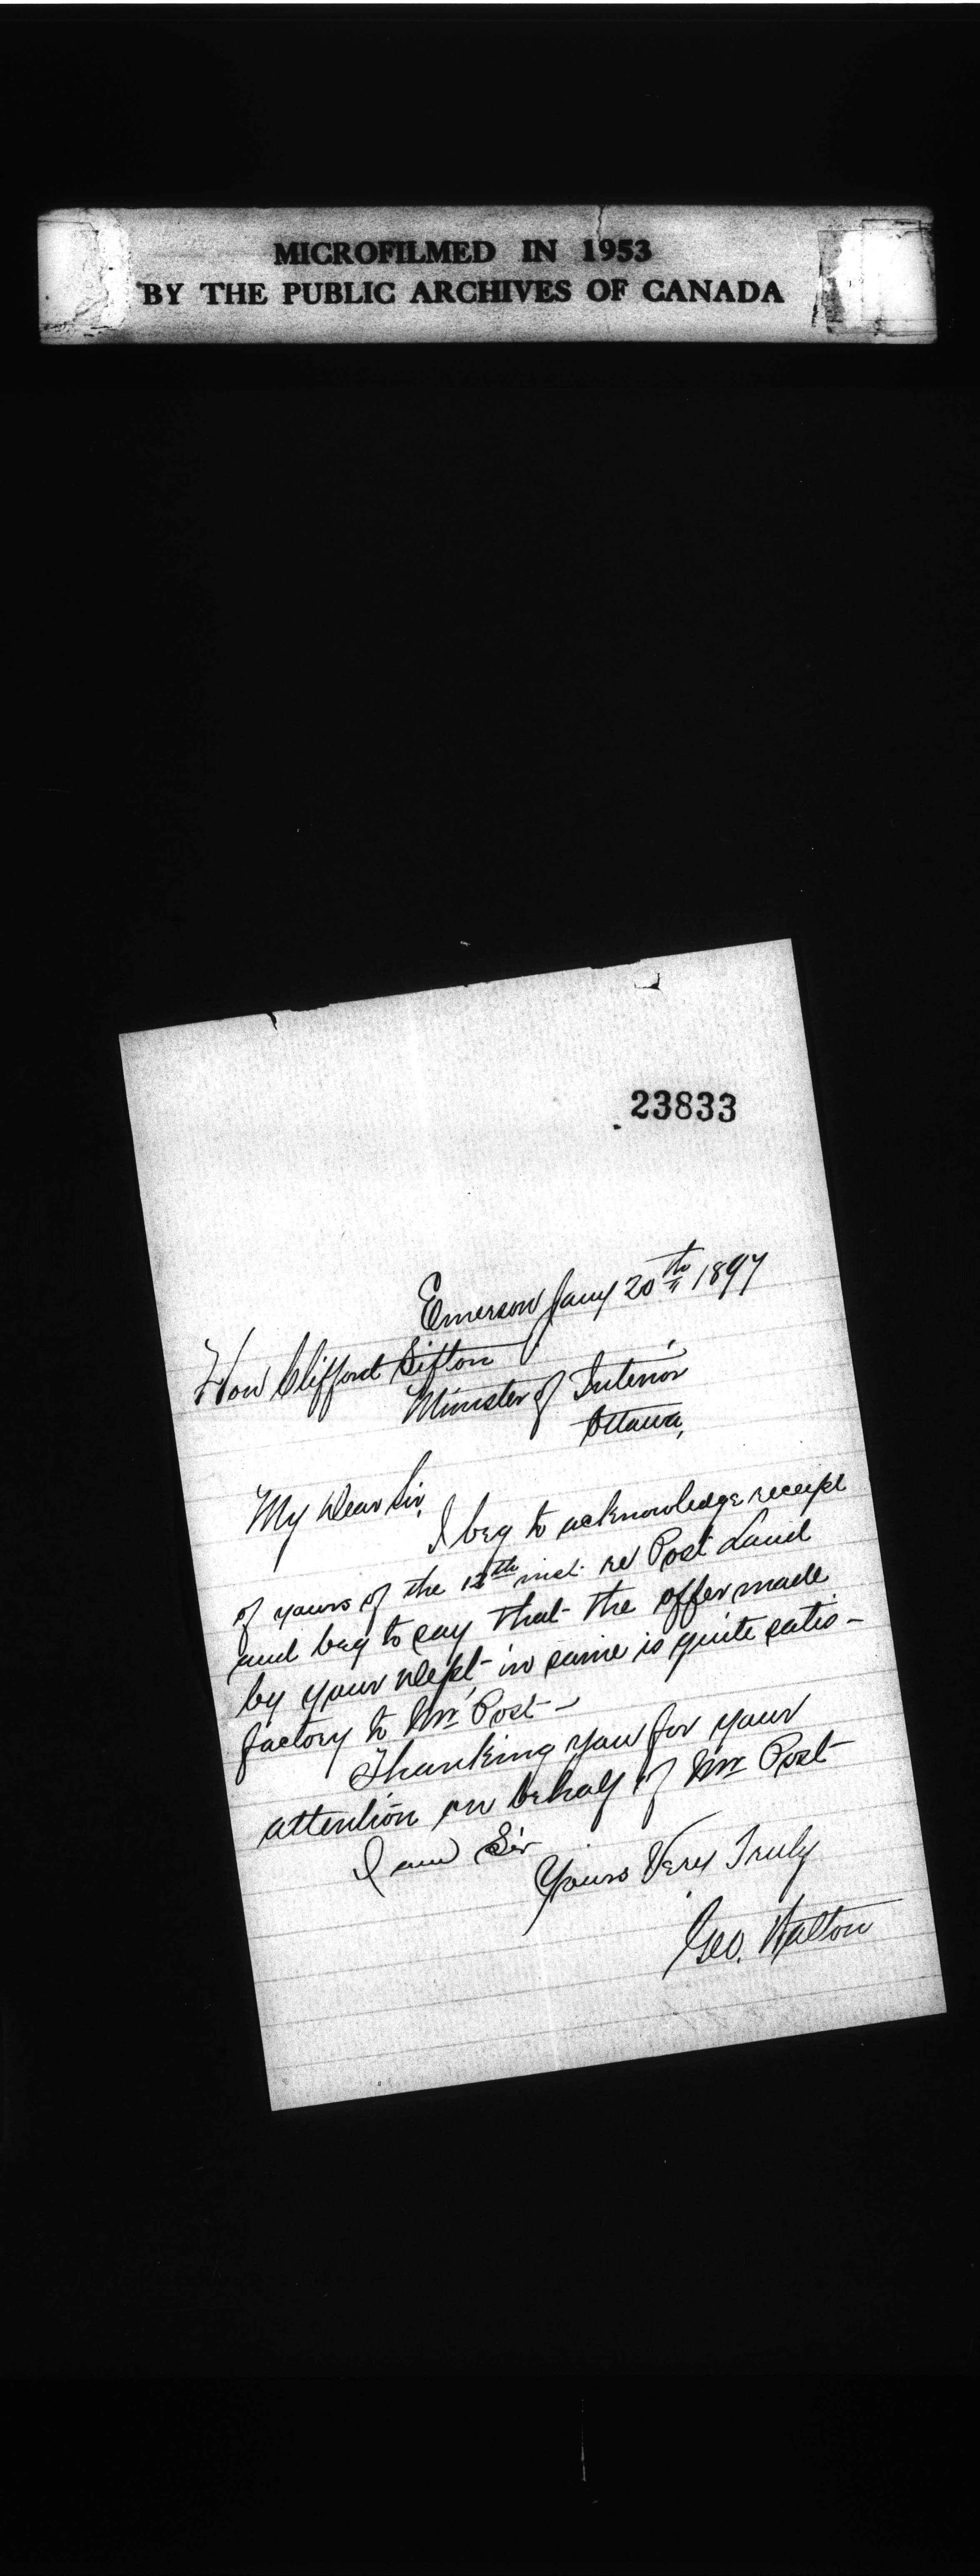 MICROFILMED IN 1953
BY THE PUBLIC ARCHIVES OF CANADA
23833
Emerson Jany 20th 1897
Hon Clifford Sifton
Minister of Interior
Ottawa,
My Dear Sir,
I beg to acknowledge receipt
of yours of the 12th inst. re Post Land
and beg to say that the offer made
by your Dept in same is quite satis-
factory to Mr Post -
Thanking you for your
attention on behalf of Mr Post
I am Sir
Yours Very Truly
Geo. Walton